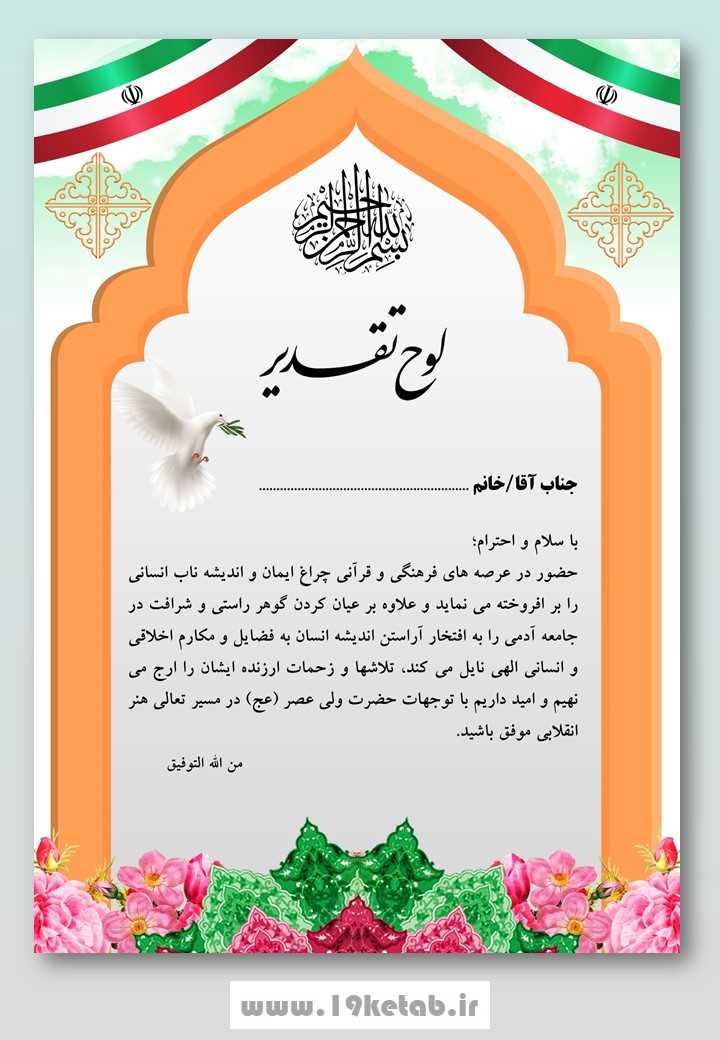 بسم الله الرحمن الرحیم
لوح تقدیر
جناب آقا/خانم ............................................................
با سلام و احترام؛
حضور در عرصه های فرهنگی و قرآنی چراغ ایمان و اندیشه ناب انسانی
را بر افروخته می نماید و علاوه بر عیان کردن گوهر راستی و شرافت در
جامعه آدمی را به افتخار آراستن اندیشه انسان به فضایل و مکارم اخلاقی
و انسانی الهی نایل می کند، تلاشها و زحمات ارزنده ایشان را ارج می
نهیم و امید داریم با توجهات حضرت ولی عصر (عج) در مسیر تعالی هنر
انقلابی موفق باشید.
من الله التوفیق
www.19ketab.ir